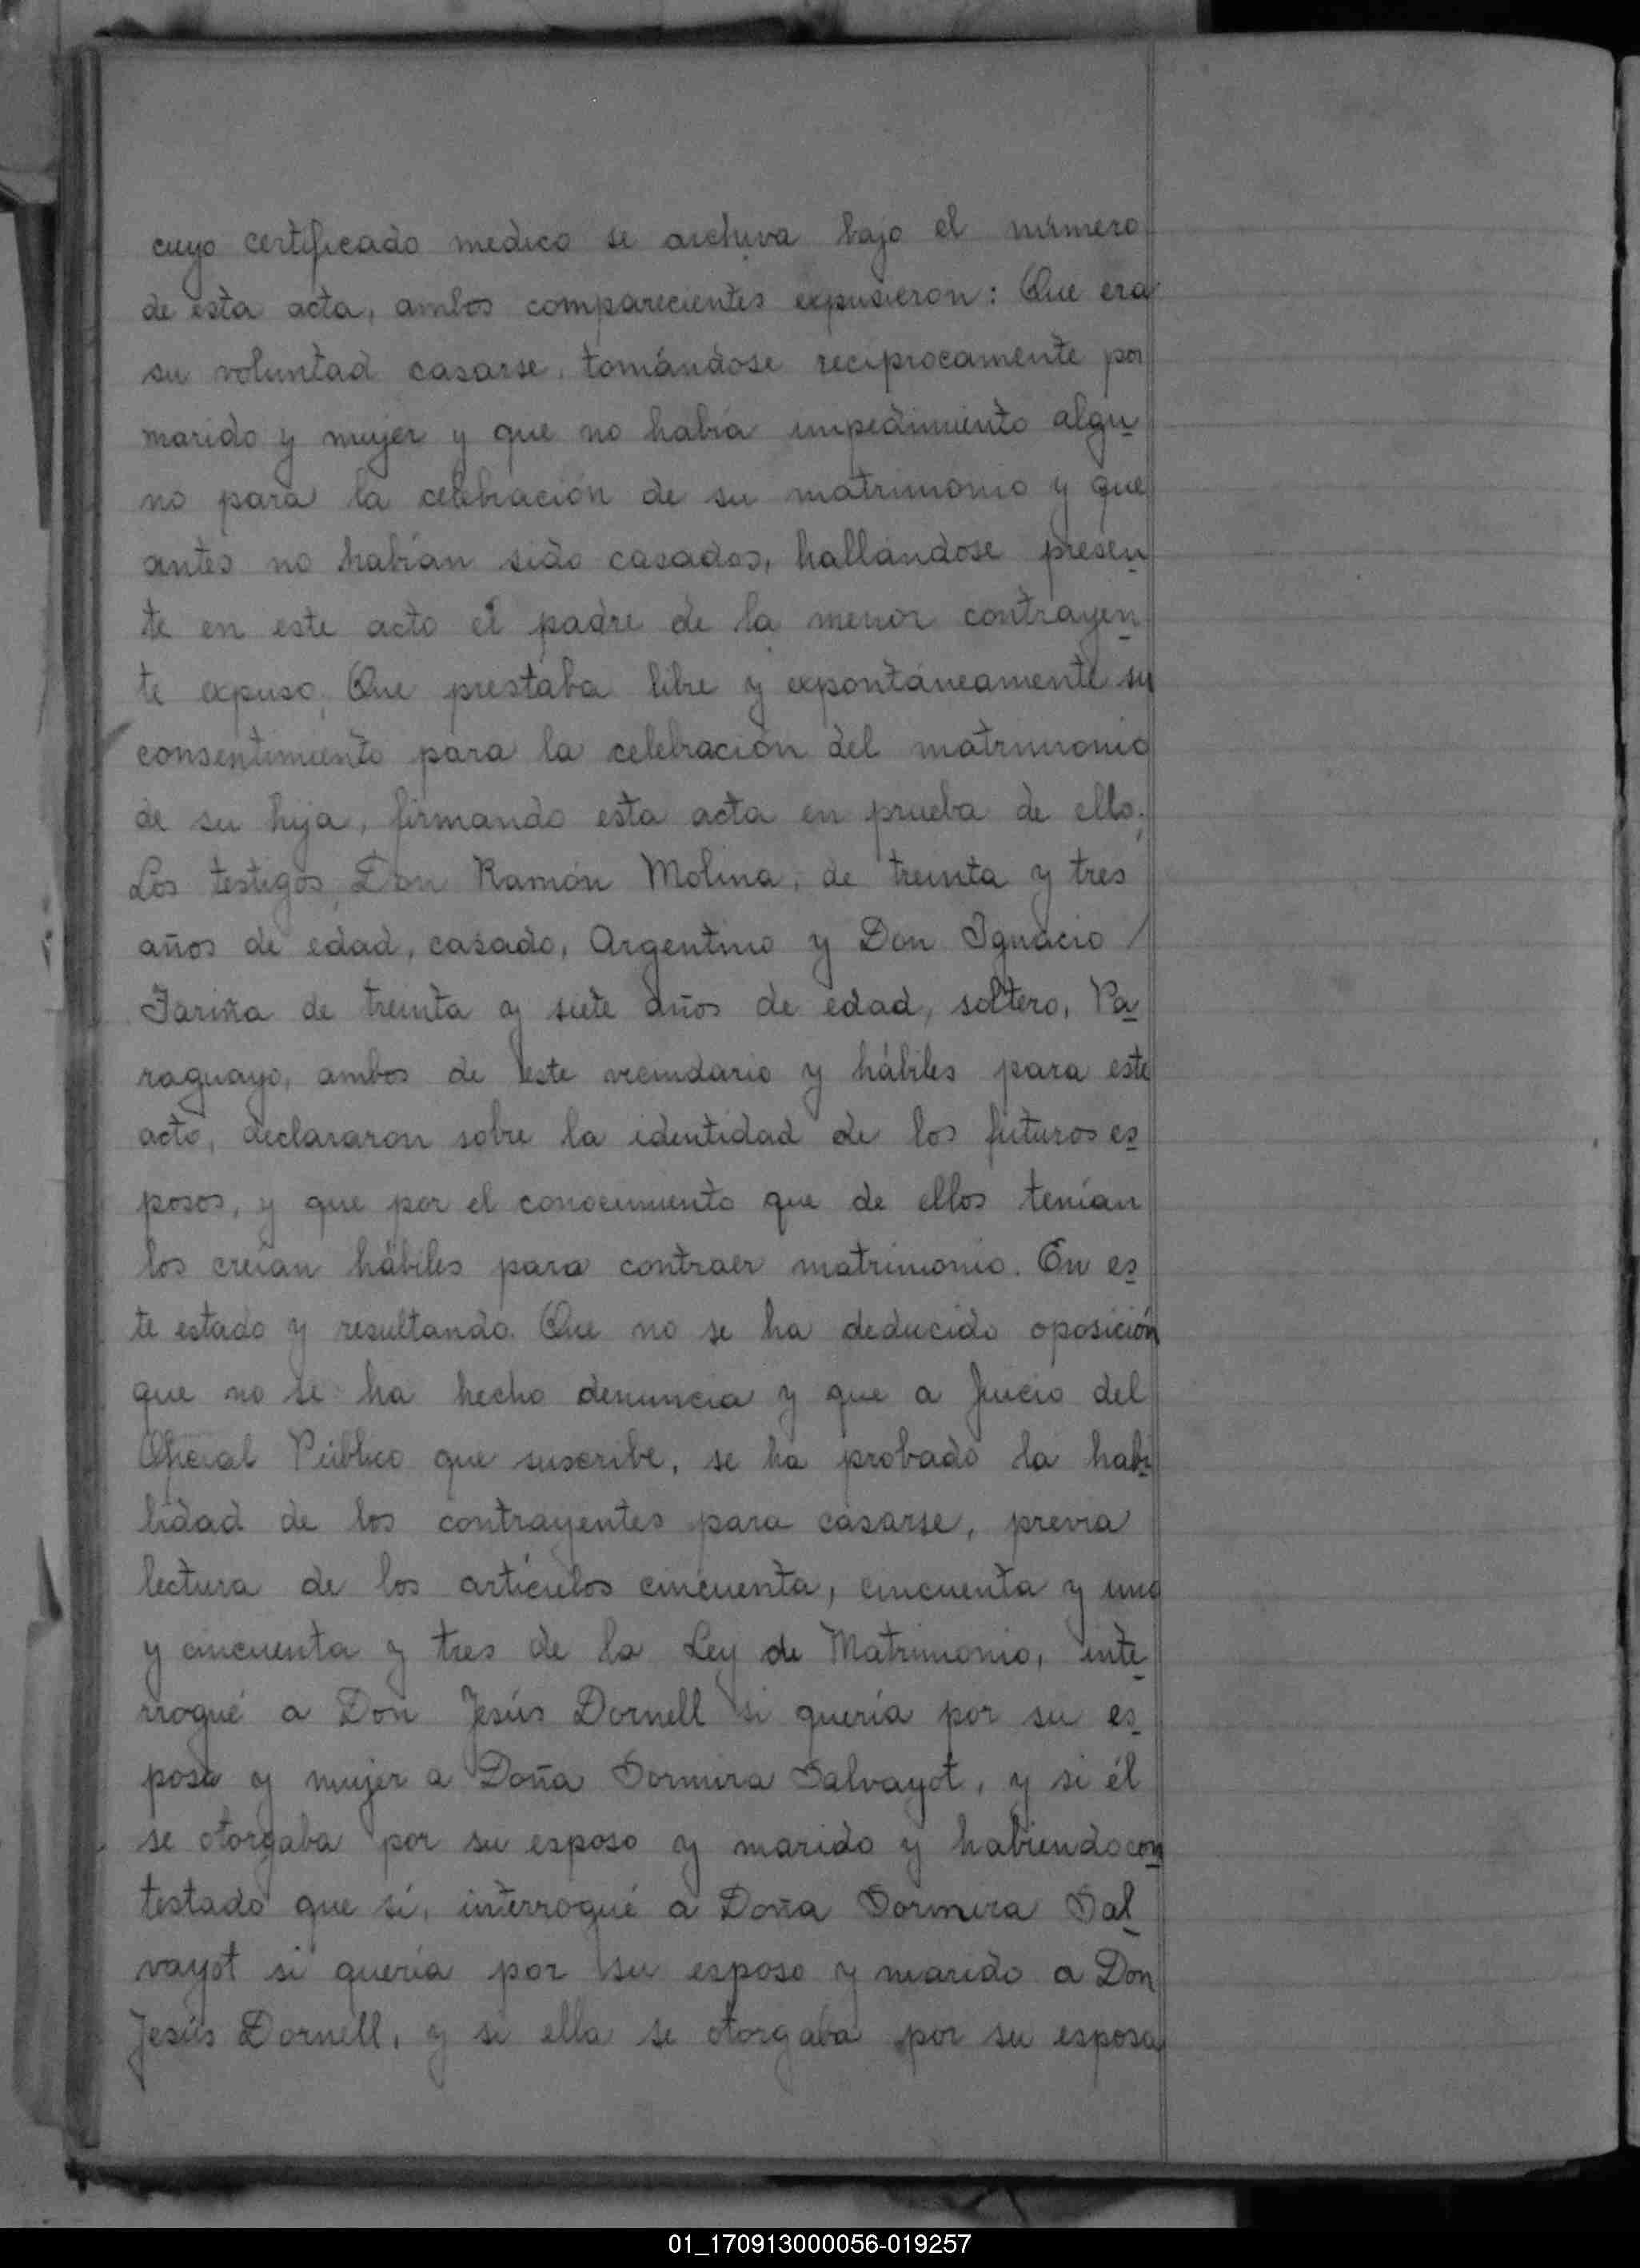 cuyo certificado medico se archiva bajo el número
de esta acta, ambos comparecientes expusieron: Que era
su voluntad casarse, tomándose reciprocamente por
marido y mujer y que no había impedimiento algu
no para la celebración de su matrimonio y que
antes no habían sido casados, hallándose presen
te en este acto el padre de la menor contrayen
te expuso, Que prestaba libre y expontáneamente su
consentimiento para la celebración del matrimonio
de su hija, firmando esta acta en prueba de ello.
Los testigos, Don Ramón Molina, de treinta y tres
años de edad, casado, Argentino y Don Ignacio
Fariña de treinta y siete años de edad, soltero, Pa
raguayo, ambos de este vecindario y hábiles para este
acto, declararon sobre la identidad de los futuros es
posos, y que por el conocimiento que de ellos tenían
los creían hábiles para contraer matrimonio. En es
te estado y resultando. Que no se ha deducido oposición
que no se ha hecho denuncia y que a juicio del
Oficial Público que suscribe, se ha probado la habi
lidad de los contrayentes para casarse, previa
lectura de los artículos cincuenta, cincuenta y uno
y cincuenta y tres de la Ley de Matrimonio, inte
rrogué a Don Jesús Dornell si quería por su es
posa y mujer a Doña Dormira Salvayot, y si él
se otorgaba por su esposo y marido y habiendo con
testado que sí, interrogué a Doña Dormira Sal
vayot si quería por su esposo y marido a Don
Jesús Dornell, y si ella se otorgaba por su esposa
01_170913000056-019257